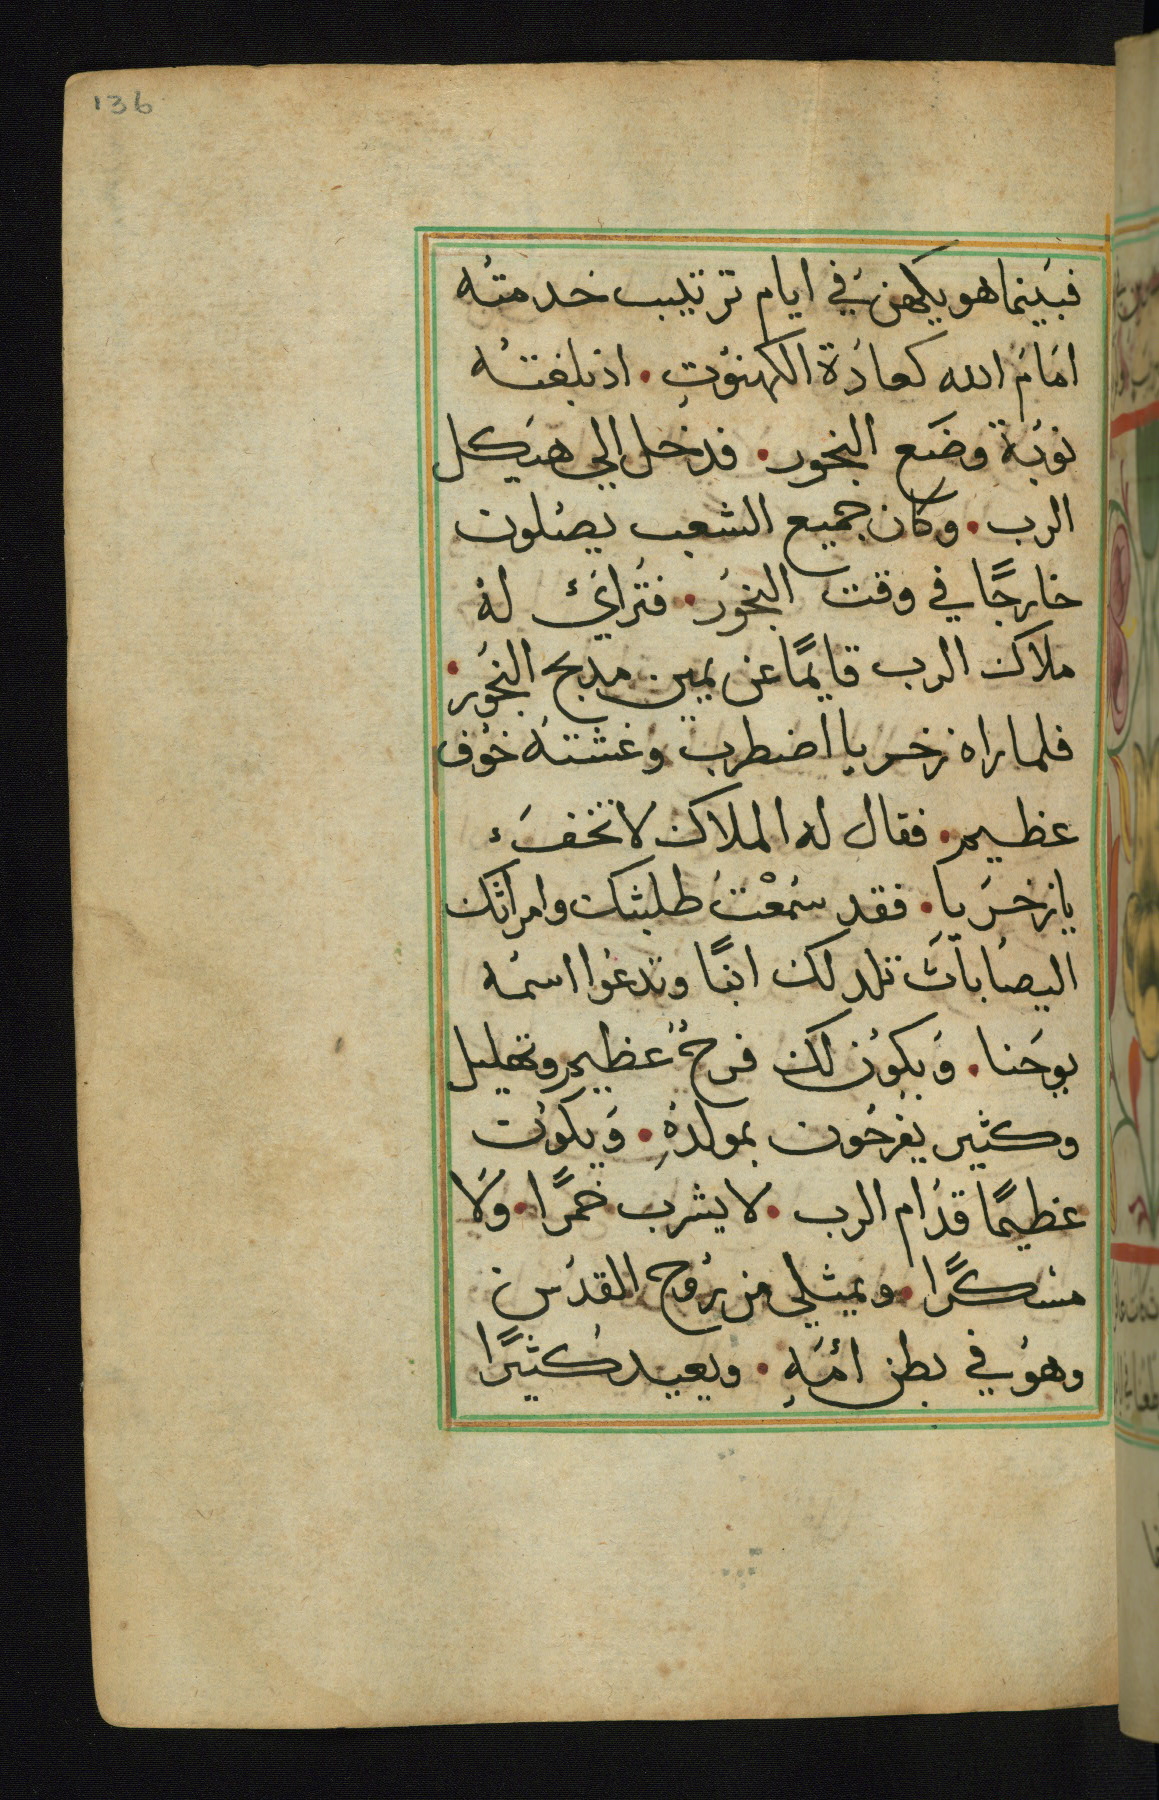 136
فبَينما هو يكهن في ايام ترتيب خدمتُه
امَامَ الله كعادَة الكهنوُتِ. اذ بلغتُه
نوبَة وضَع البخور. فدخل الي هيَكل
الرب. وكان جميع الشعب يصَلون
خارجًا في وقت البخوُر. فتُراايَ لهُ
ملاك الرب قايمًا عن يمين مدبح البخُور.
فلما راه زخريا اضطرب وغشتهُ خوُف
عظيم. فقال له الملاك لا تخفَ
يا زخرَيا. فقد سَمعْتَ طلبتك وامراتك
اليصَابات تلد لك ابنًا وتدعوا اسمُه
يوحَنا. وَيكوُن لك فرحُ عُظيم وتهليل
وكثير يفرحُون بمولدهِ. وَيكوُن
عظيمًا قدَام الرب. لا يشرب خمرًا. وَلا
مسَكرًا. ويمتلي من رُوح القدُس
وهوُ في بطن اُمَهِ. ويعيد كُثيرًا